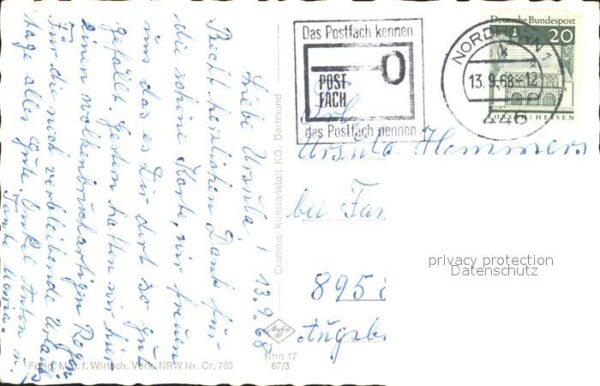 Liebe Ursula! 13.9.68
Recht herzlichen Dank für
die schöne Karte, wir freuen
uns das es Dir dort so gut
gefällt. Gestern hatten wir hier
einen wolkenbruchartigen Regen.
Für die noch verbleibende Urlaubs-
tage alles Gute. Onkel Anton u.
Tante Maria.
Das Postfach kennen
POST-
FACH
das Postfach nennen
NORDHORN 1
13.9.68-12
Deutsche Bundespost
20
LORSCH/HESSEN
Ursula Hemmers
bei Fam
8958
Augsb
privacy protection
Datenschutz
Cramers Kunstanstalt KG, Dortmund
Agfa
Nhn 17
67/3
Freig. Min. f. Wirtsch. Verk. NRW Nr. Cr. 780